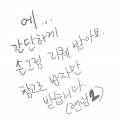 에...
간단하게
손그림 리퀘 받아요.
참고로 남자만
받습니다.
(랜덤♥)